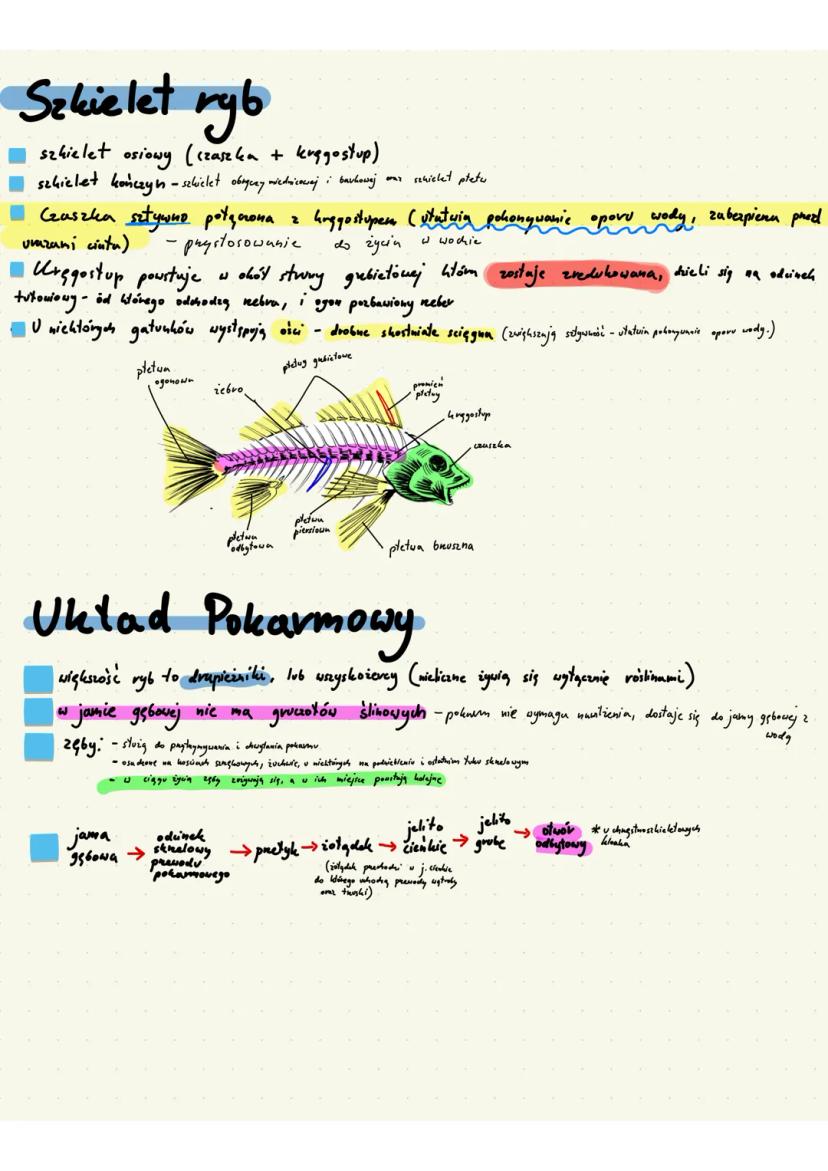 Szkielet ryb
szkielet osiowy (czaszka + kręgosłup)
szkielet kończyn - szkielet obręczy miednicowej i barkowej oraz szkielet płetw
Czaszka sztywno połączona z kręgosłupem (ułatwia pokonywanie oporu wody, zabezpiecza przed
urazami ciała) - przystosowanie do życia w wodzie
Kręgosłup powstaje w okół struny grzbietowej która zostaje zredukowana, dzieli się na odcinek
tułowiowy - od którego odchodzą żebra, i ogon pozbawiony żeber
U niektórych gatunków występują ości - drobne skostniałe ścięgna (zwiększają sztywność - ułatwia pokonywanie oporu wody.)
płetwa
ogonowa
żebro
płetwy grzbietowe
promień
płetwy
kręgosłup
czaszka
płetwa
odbytowa
płetwa
piersiowa
płetwa brzuszna
Układ Pokarmowy
większość ryb to drapieżniki, lub wszyskożercy (nieliczne żywią się wyłącznie roślinami)
w jamie gębowej nie ma gruczołów ślinowych - pokarm nie wymaga nawilżenia, dostaje się do jamy gębowej z
wodą
zęby: - służą do przytrzymywania i chwytania pokarmu
- osadzone na kościach szczękowych, żuchwie, u niektórych na podniebieniu i ostatnim łuku skrzelowym
- w ciągu życia zęby zużywają się, a w ich miejsce powstają kolejne
jama
gębowa → odcinek
skrzelowy
przewodu
pokarmowego → przełyk → żołądek → jelito
cienkie → jelito
grube → otwór
odbytowy
* u chrzęstnoszkieletowych
kloaka
(żołądek przechodzi w j. cienkie
do którego uchodzą przewody wątroby
oraz trzustki)